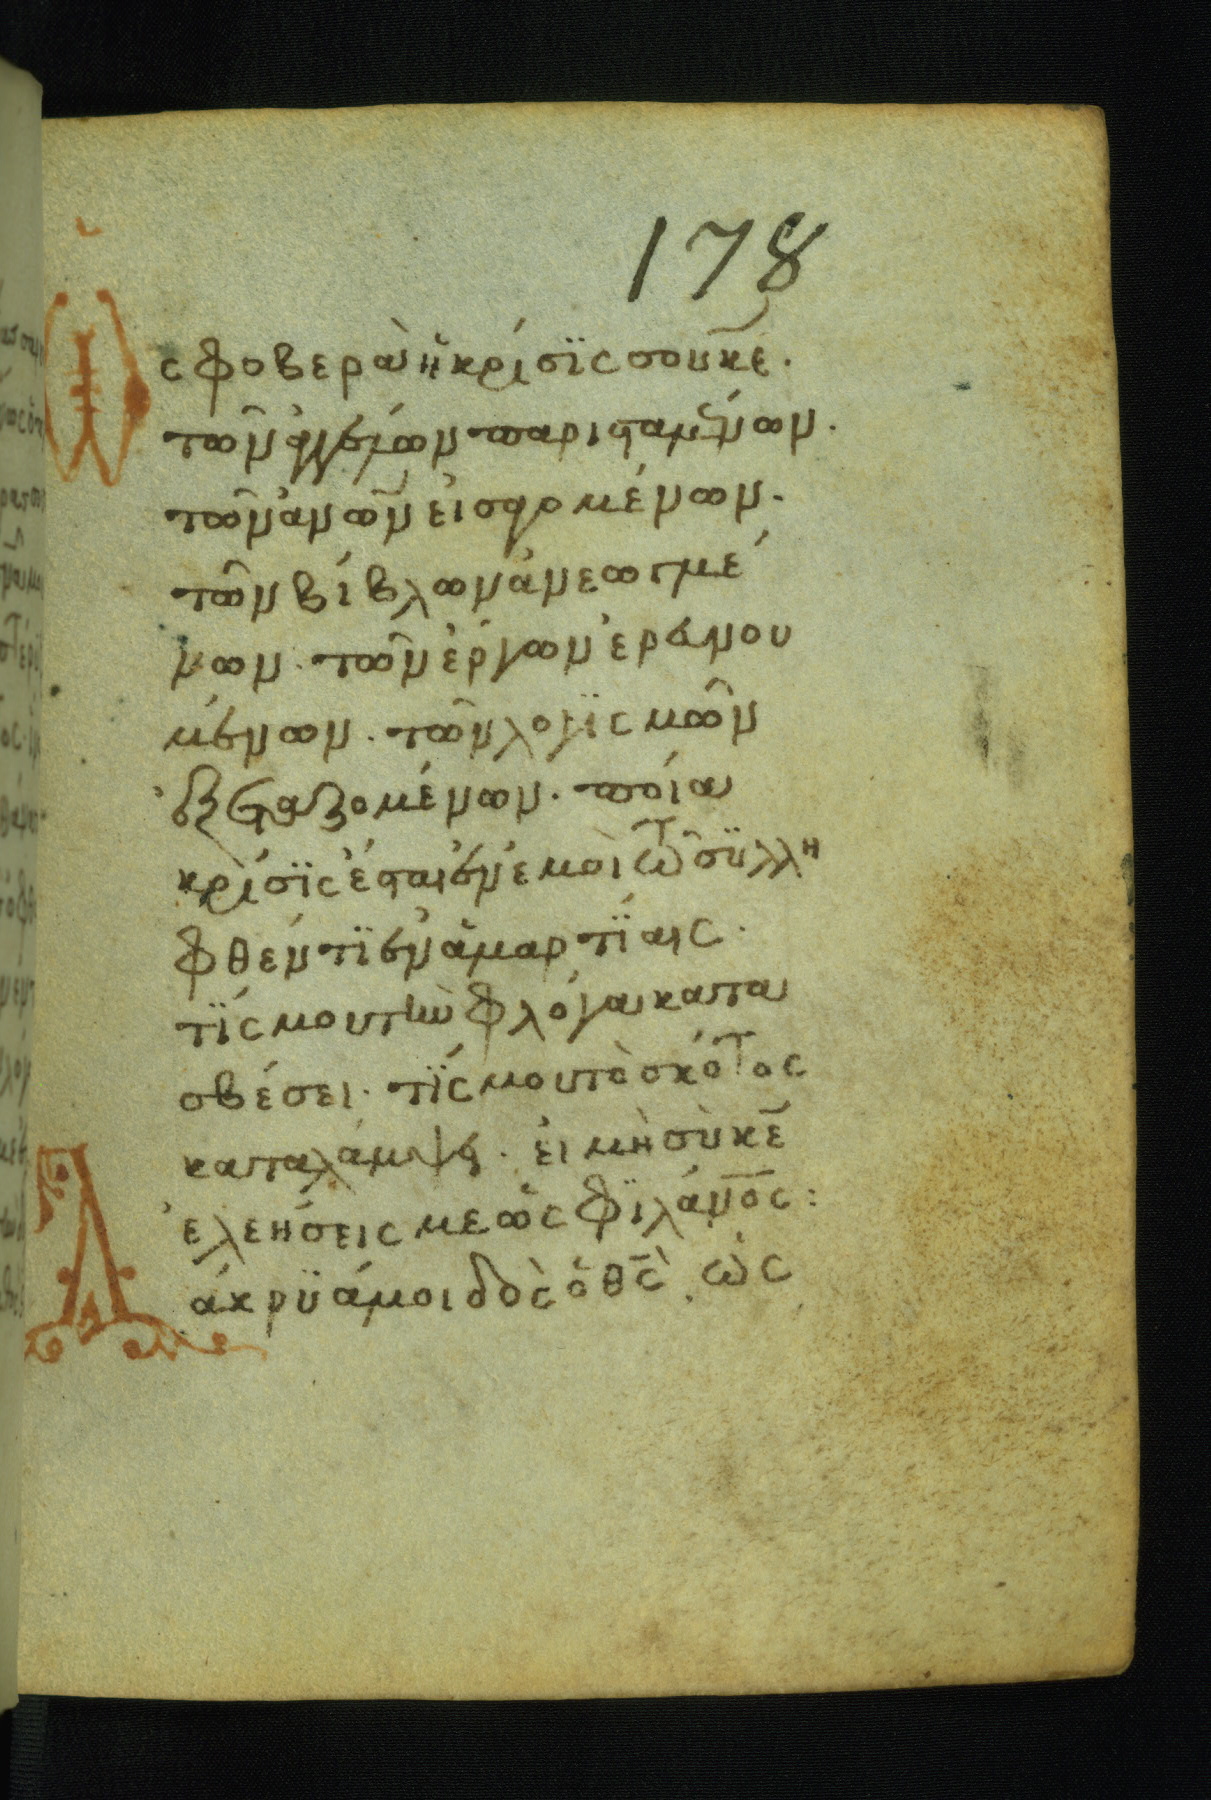 178
Ὡς φοβερὰ ἡ κρίσϊς σου κ̅ε̅.
τῶν ἀγγέλων παρισταμένων.
τῶν ἀν̅ω̅ν εἰσαγομένων.
τῶν βίβλων ἀνεωγμέ
νων. τῶν ἔργων ἐρευνου
μένων. τῶν λογϊσμῶν
ἐξεταζομένων. ποία
κρίσϊς ἔσται ἐν ἐμοὶ τῶ συλλη
φθέντϊ ἐν ἁμαρτίαις.
τίς μου τὴν φλόγα κατα
σβέσει. τίς μου τὸ σκότος
καταλάμψει. εἰ μὴ σὺ κ̅ε̅
ἐλεήσεις με ὡς φϊλάν̅ο̅ς:
Δάκρϋά μοι δὸς ὁ θ̅ς̅, ὡς